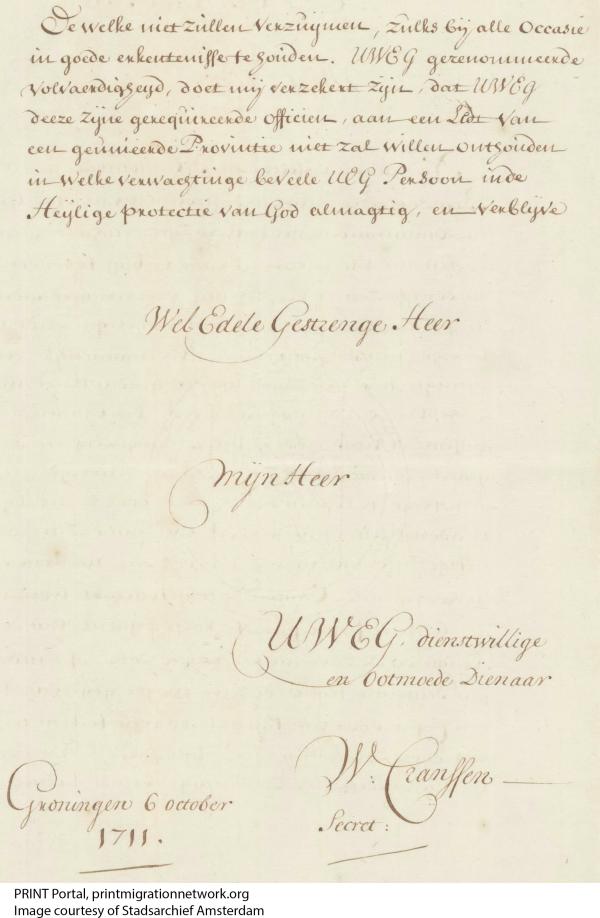 De welke niet zullen verzuymen, zulks bij alle Occasie
in goede erkentenisse te houden. UWEG gezenommeerde
volvaerdigheyd, doet mij verzekert zijn, dat UWEG
deeze zijne gerequireerde officien, aan een Lidt van
een geunieerde Provintie niet zal willen onthouden
in welke verwachtinge beveele UEG Persoon in de
Heylige protectie van God almagtig, en verblyve
Wel Edele Gestrenge Heer
Mijn Heer
UWEG. dienstwillige
en Ootmoede Dienaar
W: Cranssen
Secret:
Groningen 6 october
1711.
PRINT Portal, printmigrationnetwork.org
Image courtesy of Stadsarchief Amsterdam